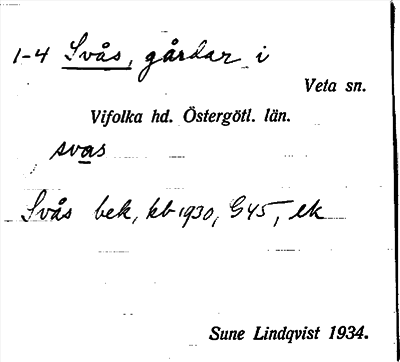 1-4 Svås, gårdar i
Veta sn.
Vifolka hd. Östergötl. län.
svas
Svås bek, kb 1930, G45, ek
Sune Lindqvist 1934.